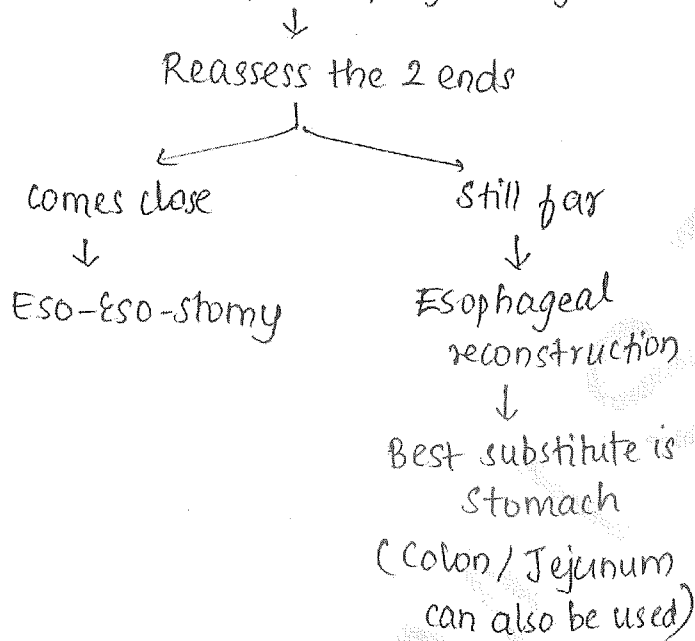 ↓
Reassess the 2 ends
comes close
↓
Eso-Eso-stomy
Still far
↓
Esophageal
reconstruction
↓
Best substitute is
Stomach
(Colon / Jejunum
can also be used)